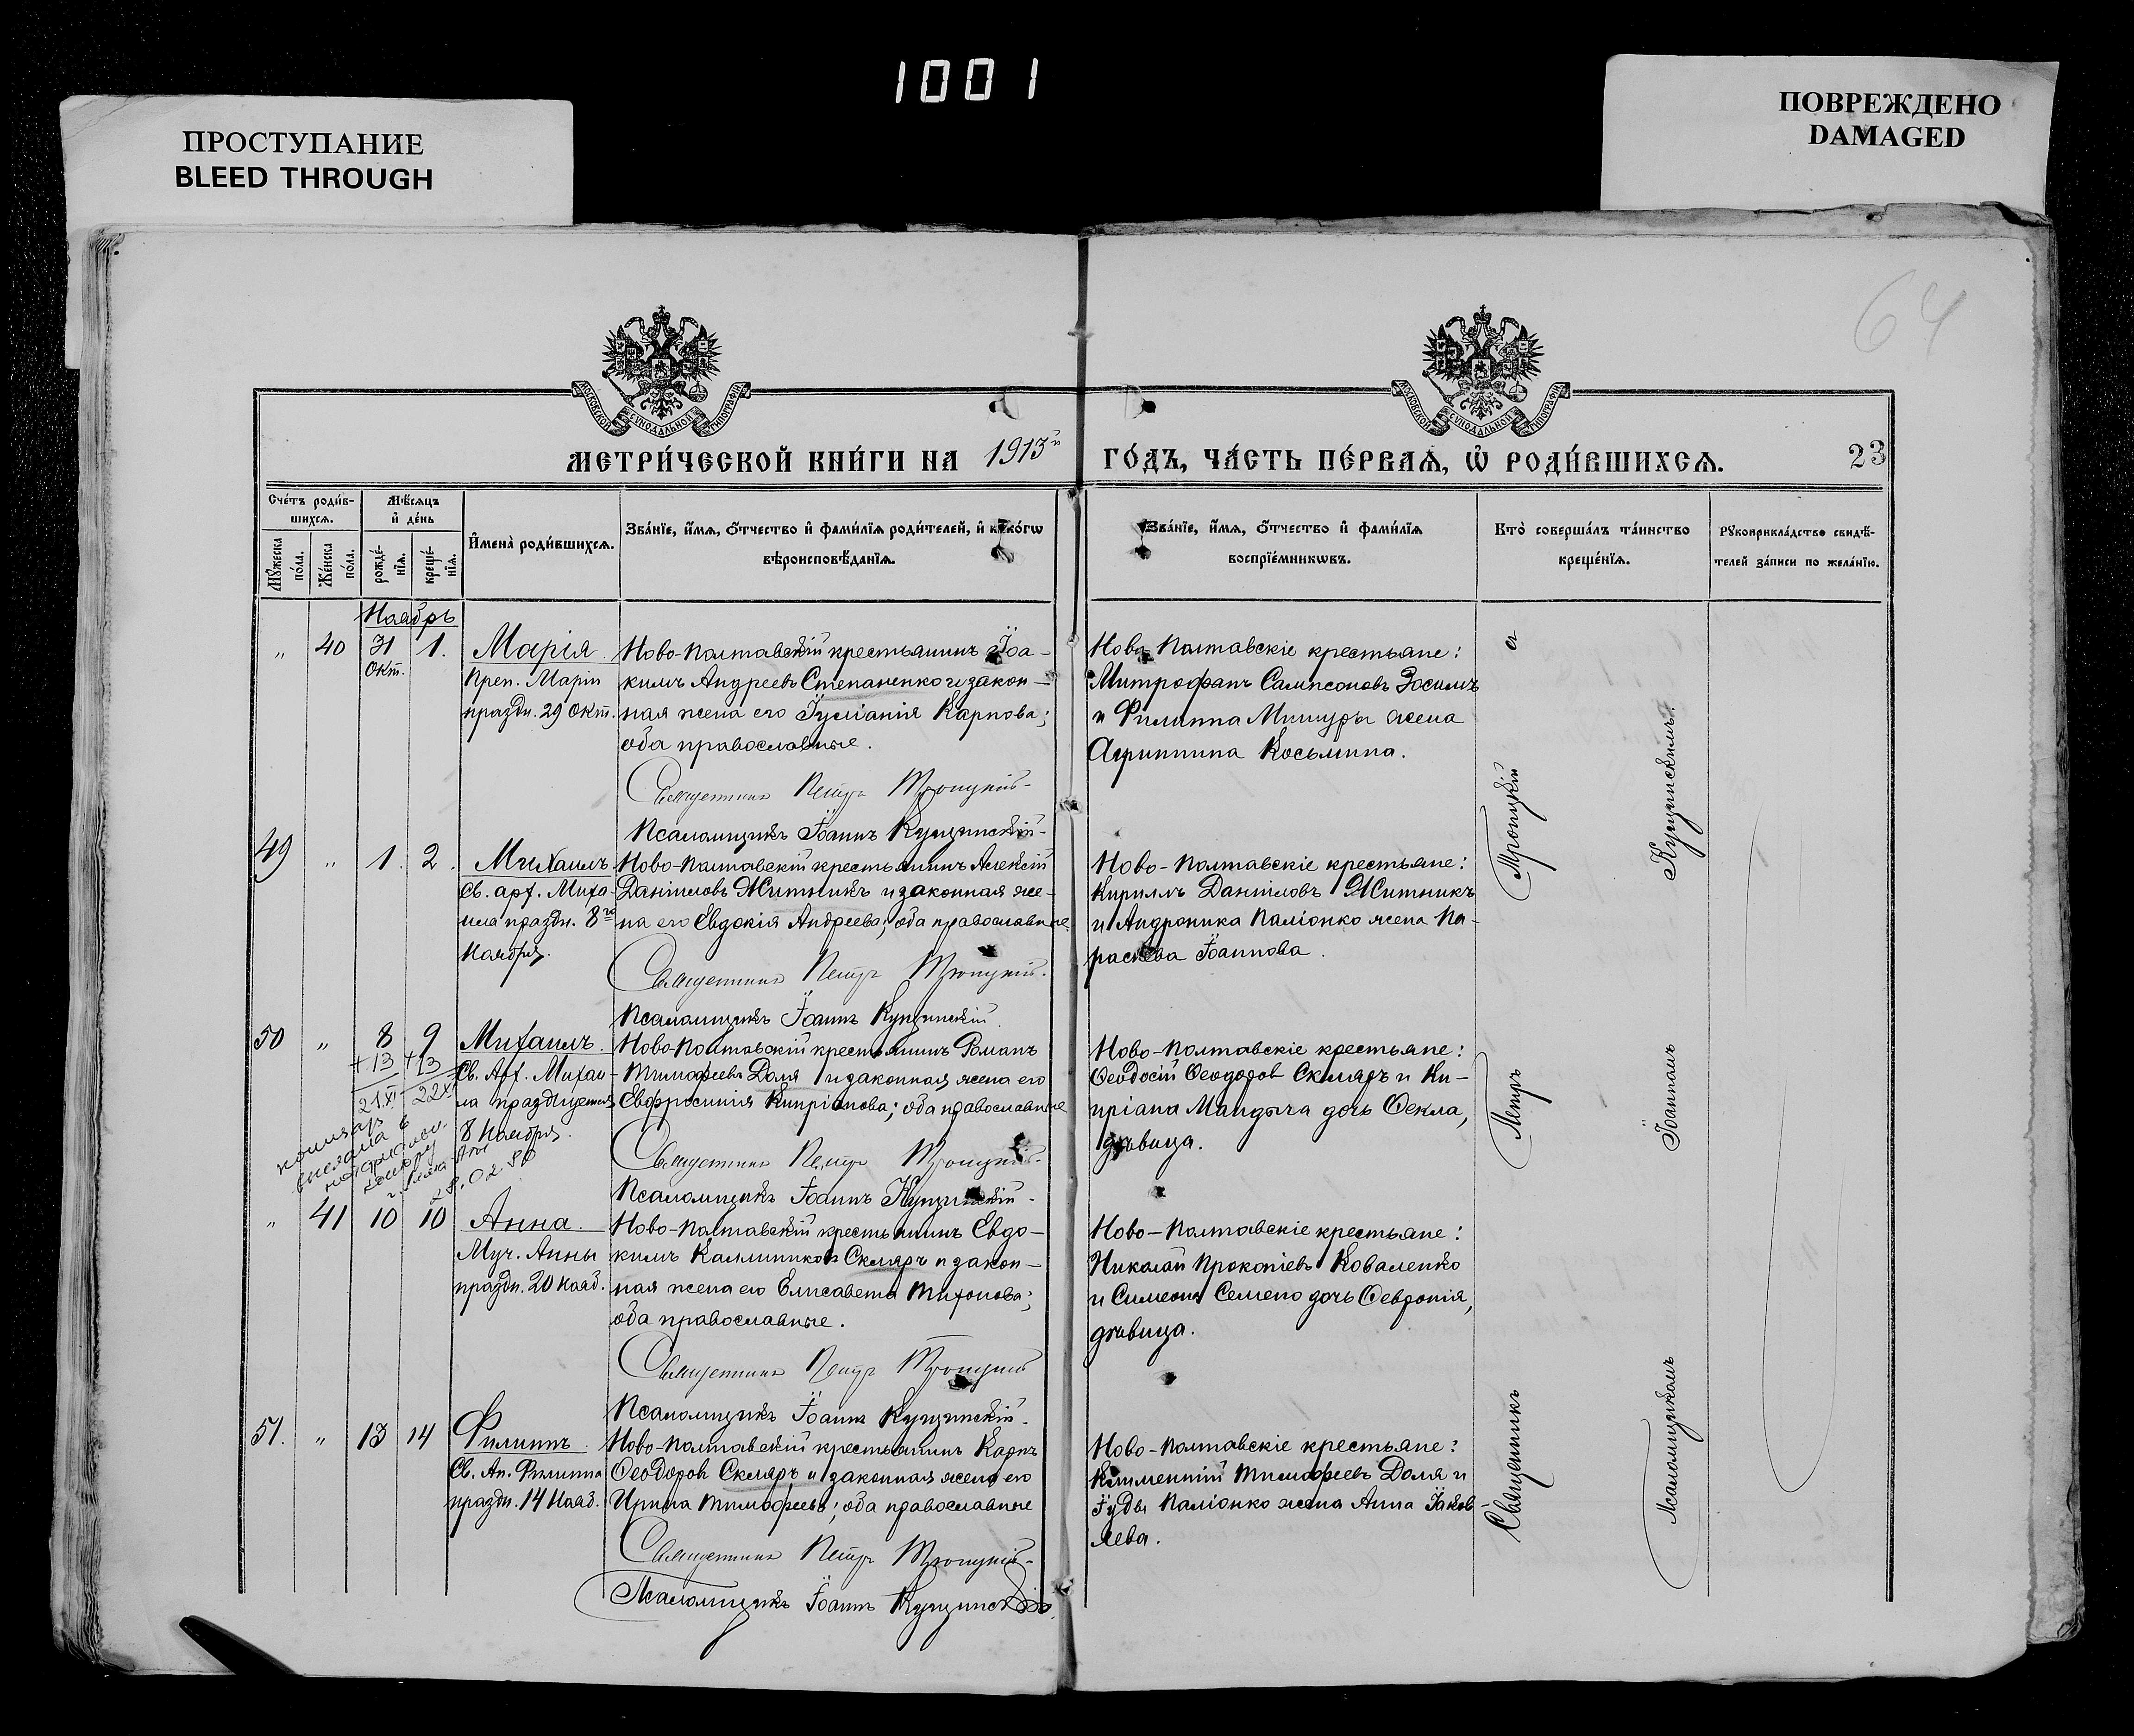 1001
ПРОСТУПАНИЕ
BLEED THROUGH
ПОВРЕЖДЕНО
DAMAGED
64
МОСКОВСКОЙ СѴНОДАЛЬНОЙ ТИПОГРАФІИ
МОСКОВСКОЙ СѴНОДАЛЬНОЙ ТИПОГРАФІИ
МЕТРИ́ЧЕСКОЙ КНИ́ГИ НА 1913й ГО́ДЪ, ЧА́СТЬ ПЕ́РВАѦ, Ѡ҆ РОДИ́ВШИХСѦ.
23
Сче́тъ роди́в-
шихсѧ.
Мѣ́сѧцъ
и҆ де́нь
Мꙋ́жеска
по́ла.
Же́нска
по́ла.
рожде́-
нїѧ.
креще́-
нїѧ.
И҆мена̀ роди́вшихсѧ.
Зва́нїе, и҆́мѧ, ѻ҆́тчество и҆ фами́лїѧ роди́телей, и҆ како́гѡ
вѣроисповѣ́данїѧ.
Зва́нїе, и҆́мѧ, ѻ҆́тчество и҆ фами́лїѧ
воспрїе́мникѡвъ.
Кто̀ соверша́лъ та́инство
креще́нїѧ.
Рꙋкоприкла́дство свидѣ́-
телей за́писи по жела́нїю.
Ноябрь
„ 40 31 1. Марія.
Окт.
Преп. Маріи
праздн. 29 Окт.
Ново-Полтавскій крестьянинъ Іоа-
кимъ Андреевъ Степаненко и закон-
ная жена его Іуліанія Карпова;
оба православные.
Священникъ Петръ Троицкій
Псаломщикъ Іоаннъ Купчинскій
Ново-Полтавскіе крестьяне:
Митрофанъ Сампсоновъ Зосимъ
и Филиппа Мишуры жена
Агриппина Косьмина.
49 „ 1. 2. Михаилъ.
Св. арх. Миха-
ила праздн. 8го
Ноября.
Ново-Полтавскій крестьянинъ Алексій
Даніиловъ Житникъ и законная же-
на его Евдокія Андреева; оба православные.
Священникъ Петръ Троицкій
Псаломщикъ Іоаннъ Купчинскій.
Ново-Полтавскіе крестьяне:
Кириллъ Даніиловъ Житникъ
и Андроника Паліонко жена Па-
раскева Іоаннова.
50 „ 8 9 Михаилъ.
+13 +13
21XI 22XI
Св. Арх. Михаи-
ла празднуется
8 Ноября.
28.02.80
Ново-Полтавскій крестьянинъ Романъ
Тимофеевъ Доля и законная жена его
Евфросинія Кипріанова; оба православные
Священникъ Петръ Троицкій
Псаломщикъ Іоаннъ Купчинскій
Ново-Полтавскіе крестьяне:
Ѳеодосій Ѳеодоровъ Скляръ и Ки-
пріана Мандыча дочь Ѳекла,
дѣвица.
„ 41 10 10 Анна.
Муч. Анны
праздн. 20 Нояб.
Ново-Полтавскій крестьянинъ Евдо-
кимъ Каллиниковъ Скляръ и закон-
ная жена его Елисавета Тихонова;
оба православные.
Священникъ Петръ Троицкій
Псаломщикъ Іоаннъ Купчинскій.
Ново-Полтавскіе крестьяне:
Николай Прокопіевъ Коваленко
и Симеона Семено дочь Ѳевронія,
дѣвица.
51. „ 13 14 Филиппъ.
Св. Ап. Филиппа
праздн. 14 Нояб.
Ново-Полтавскій крестьянинъ Карпъ
Ѳеодоровъ Скляръ и законная жена его
Ирина Тимофеева; оба православные
Священникъ Петръ Троицкій
Псаломщикъ Іоаннъ Купчинскій.
Ново-Полтавскіе крестьяне:
Климентій Тимофеевъ Доля и
Іуды Паліонко жена Анна Іаков-
лева.
Священникъ Петръ Троицкій съ
Псаломщикомъ Іоанномъ Купчинскимъ.